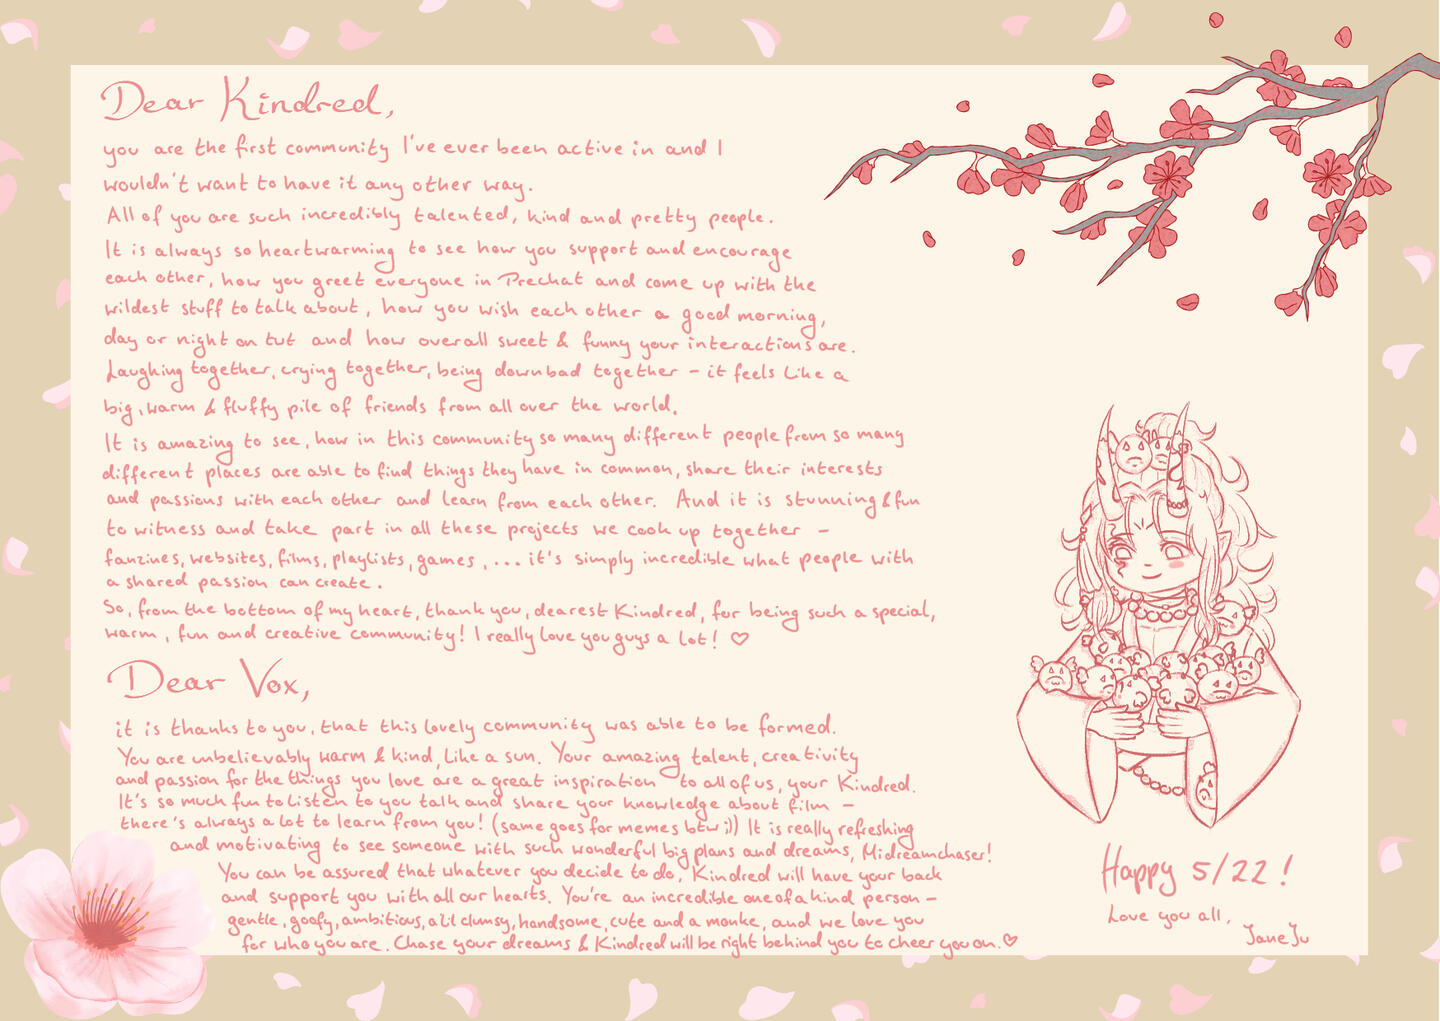 Dear Kindred,
you are the first community I've ever been active in and I
wouldn't want to have it any other way.
All of you are such incredibly talented, kind and pretty people.
It is always so heartwarming to see how you support and encourage
each other, how you greet everyone in Prechat and come up with the
wildest stuff to talk about, how you wish each other a good morning,
day or night on twt and how overall sweet & funny your interactions are.
Laughing together, crying together, being down bad together - it feels like a
big, warm & fluffy pile of friends from all over the world.
It is amazing to see, how in this community so many different people from so many
different places are able to find things they have in common, share their interests
and passions with each other and learn from each other. And it is stunning & fun
to witness and take part in all these projects we cook up together -
fanzines, websites, films, playlists, games, ... it's simply incredible what people with
a shared passion can create.
So, from the bottom of my heart, thank you, dearest Kindred, for being such a special,
warm, fun and creative community! I really love you guys a lot! ♡
Dear Vox,
it is thanks to you, that this lovely community was able to be formed.
You are unbelievably warm & kind, like a sun. Your amazing talent, creativity
and passion for the things you love are a great inspiration to all of us, your Kindred.
It's so much fun to listen to you talk and share your knowledge about film -
there's always a lot to learn from you! (same goes for memes btw ;)) It is really refreshing
and motivating to see someone with such wonderful big plans and dreams, Midreamchaser!
You can be assured that whatever you decide to do, Kindred will have your back
and support you with all our hearts. You're an incredible one of a kind person -
gentle, goofy, ambitious, a lil clumsy, handsome, cute and a monke, and we love you
for who you are. Chase your dreams & Kindred will be right behind you to cheer you on. ♡
Happy 5/22!
Love you all,
JaneJu